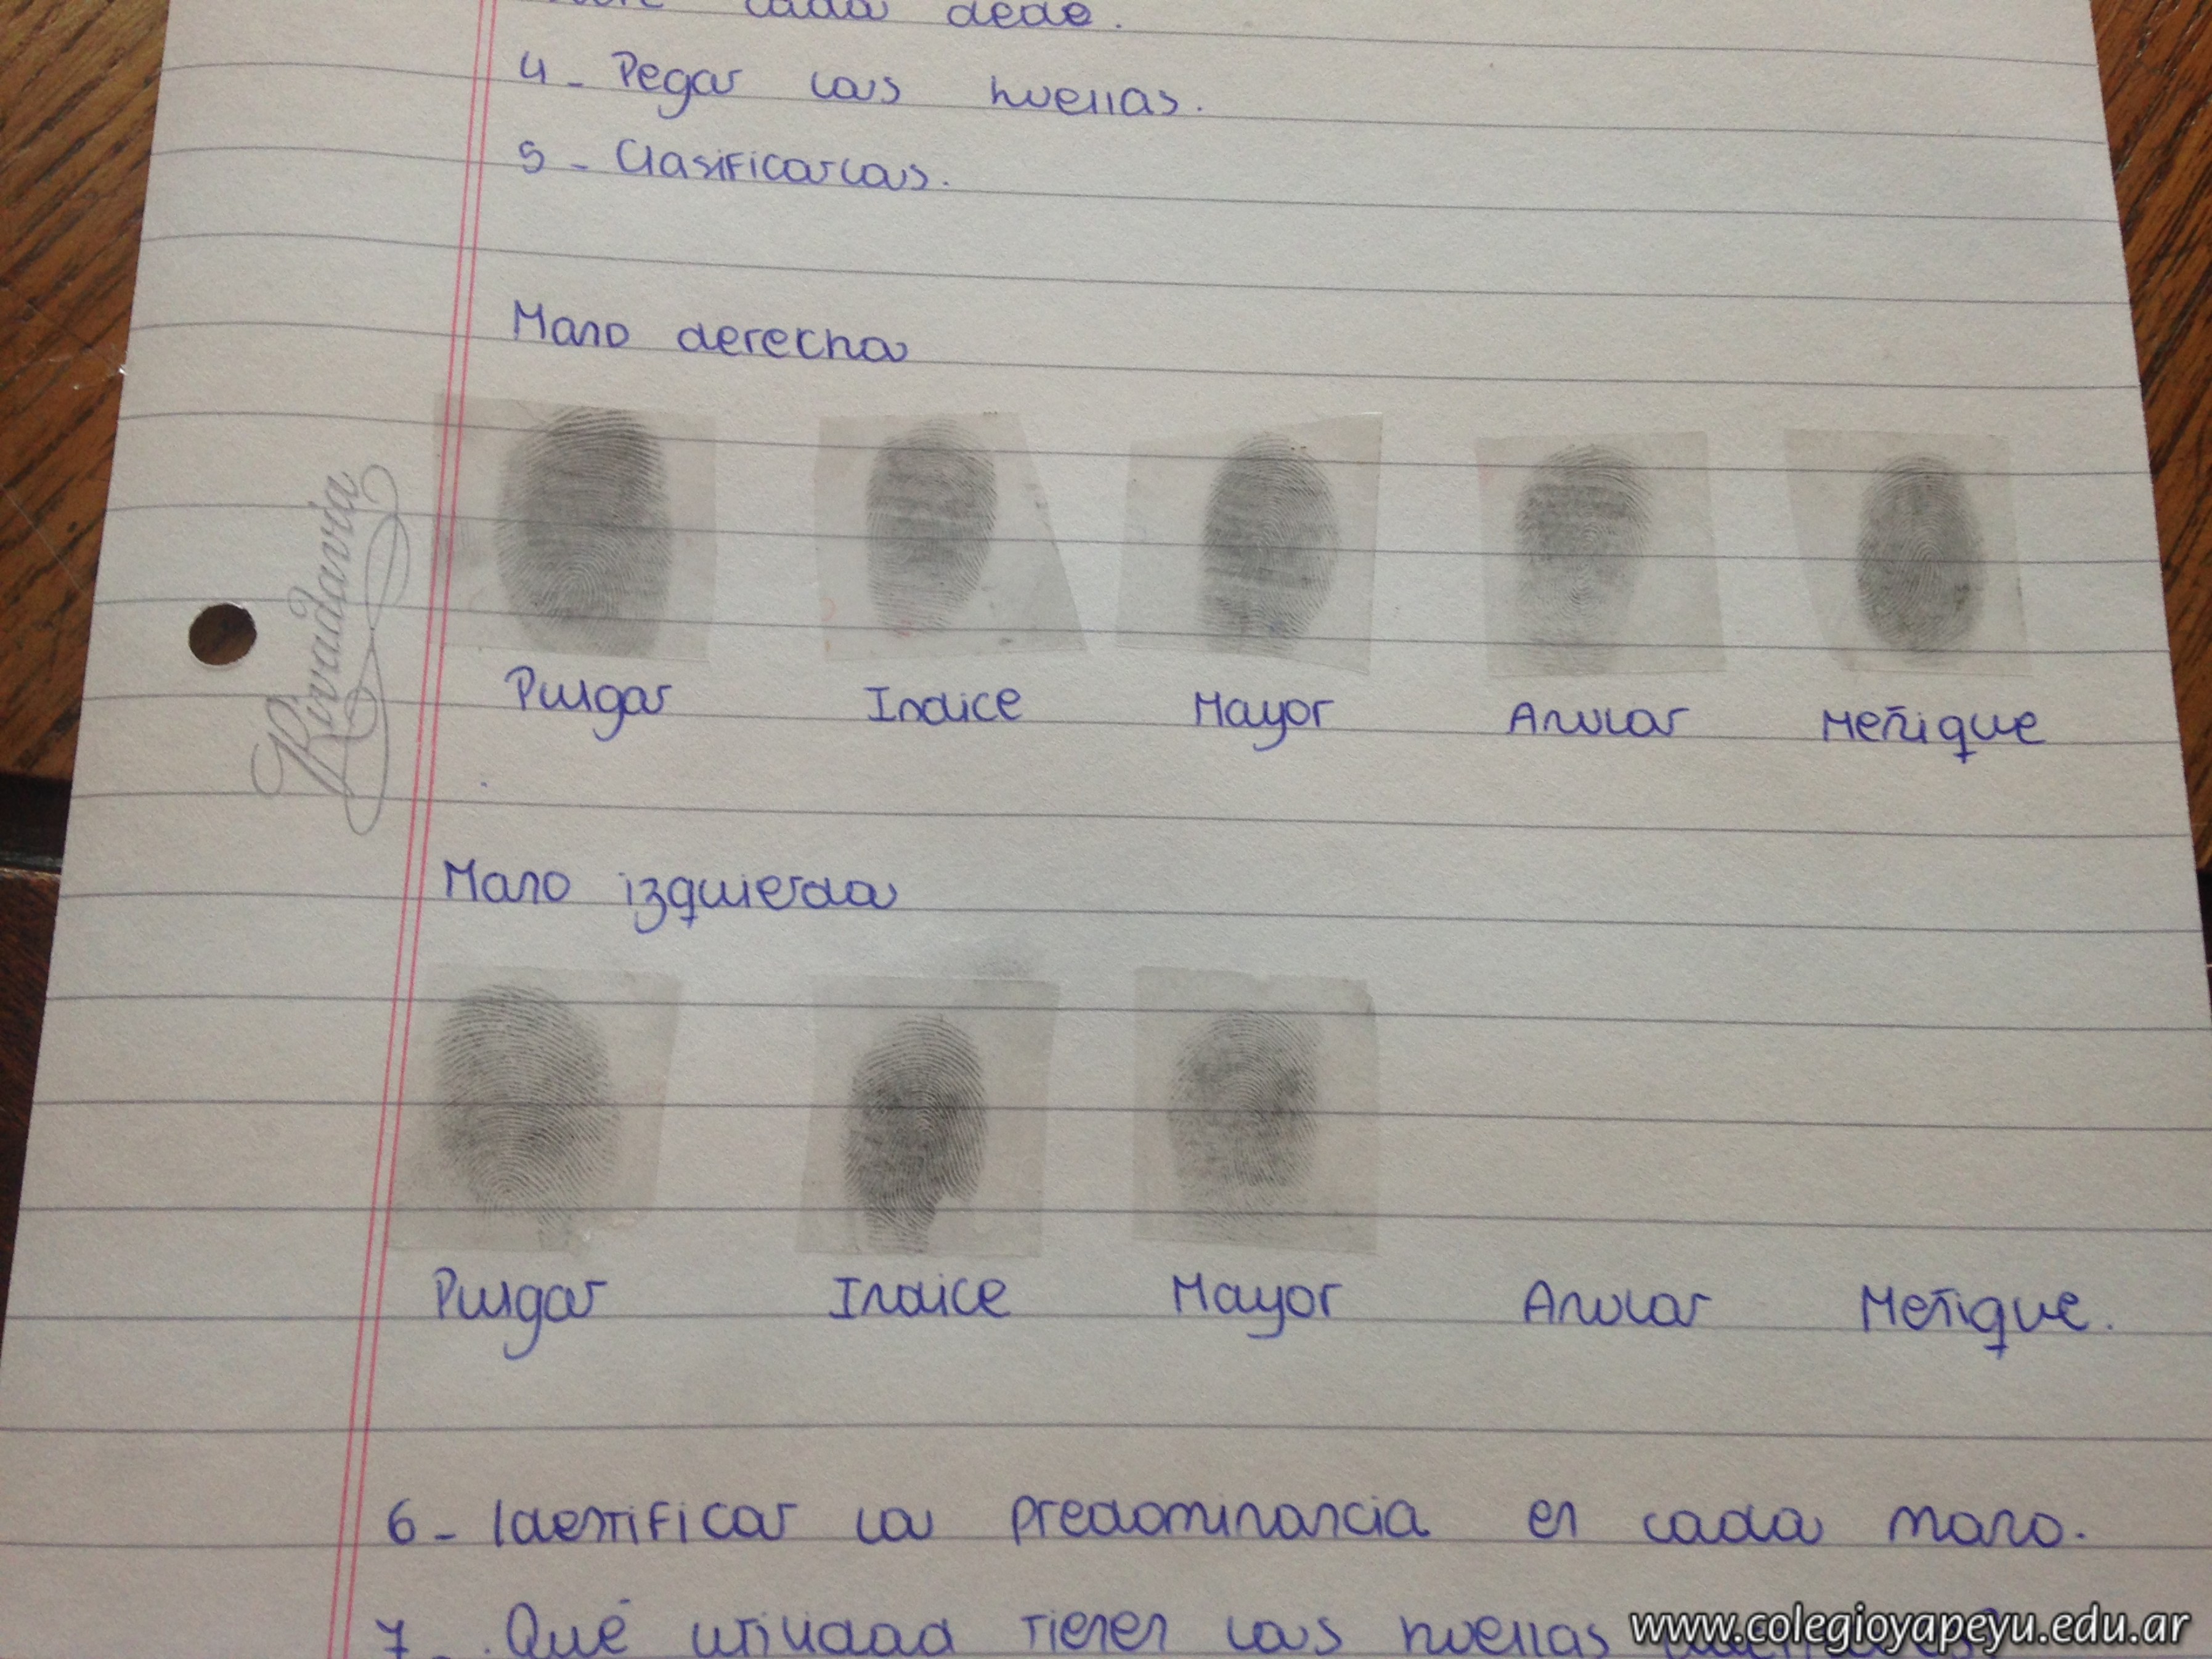 cada dedo.
4- Pegar las huellas.
5- Clasificarlas.
Mano derecha
Rivadavia
Pulgar Indice Mayor Anular Meñique
Mano izquierda
Pulgar Indice Mayor Anular Meñique.
6- Identificar la predominancia en cada mano.
7- Qué utilidad tienen las huellas
www.colegioyapeyu.edu.ar